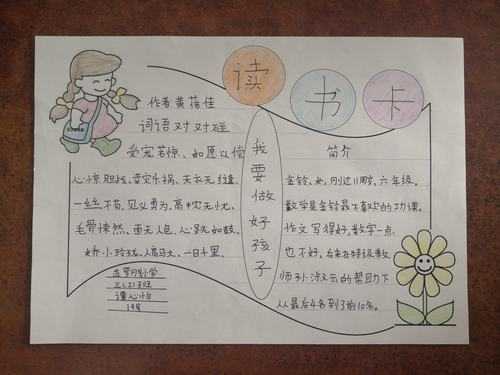 读书卡
作者黄蓓佳
词语对对碰
受宠若惊、如愿以偿
心惊胆战、幸灾乐祸、天衣无缝、
一丝不苟、见义勇为、高枕无忧、
毛骨悚然、面无人色、心跳如鼓、
娇小玲珑、人高马大、一日千里、
我要做好孩子
简介
金铃，女，刚过11岁，六年级。
数学是金铃最不喜欢的功课。
作文写得好，数学一点
也不好，后来在特级教
师孙淑云的帮助下
从最后4名到了前10名。